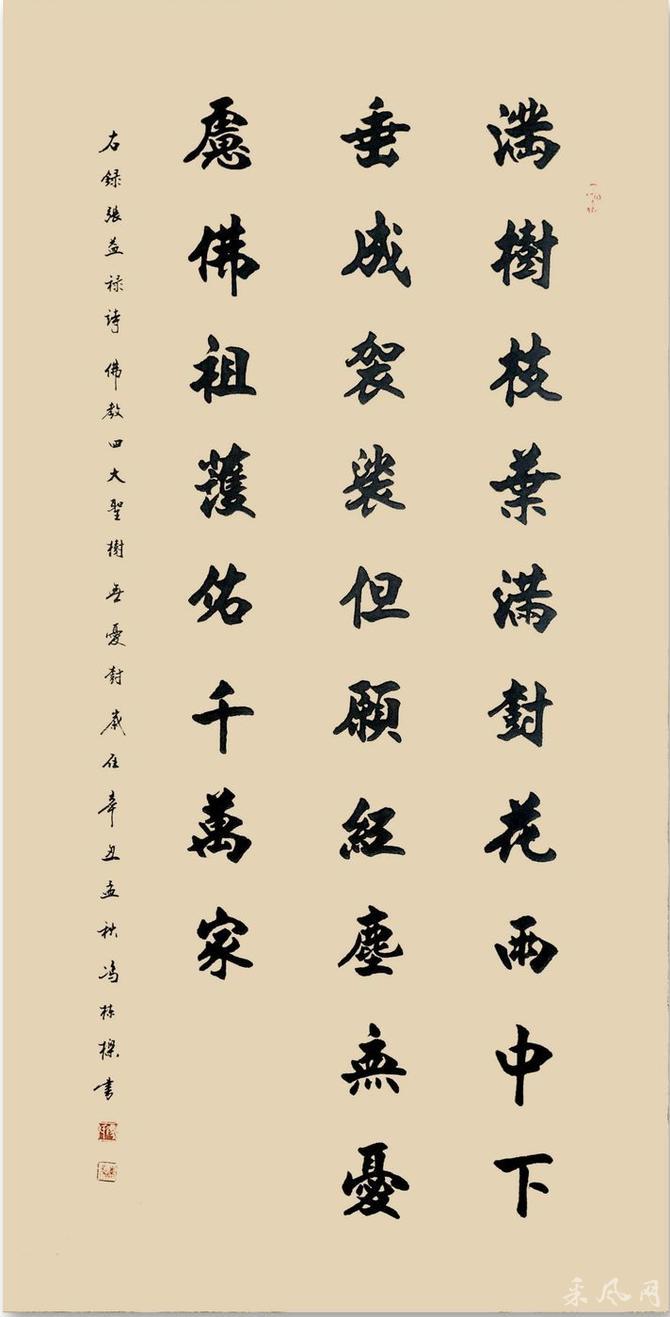 满樹枝葉满封花雨中下
垂成袈裟但願紅塵無憂
慮佛祖護佑千萬家
右録張益禄詩佛教四大聖樹無憂封歲在辛丑孟秋冯栋樑书
采风网